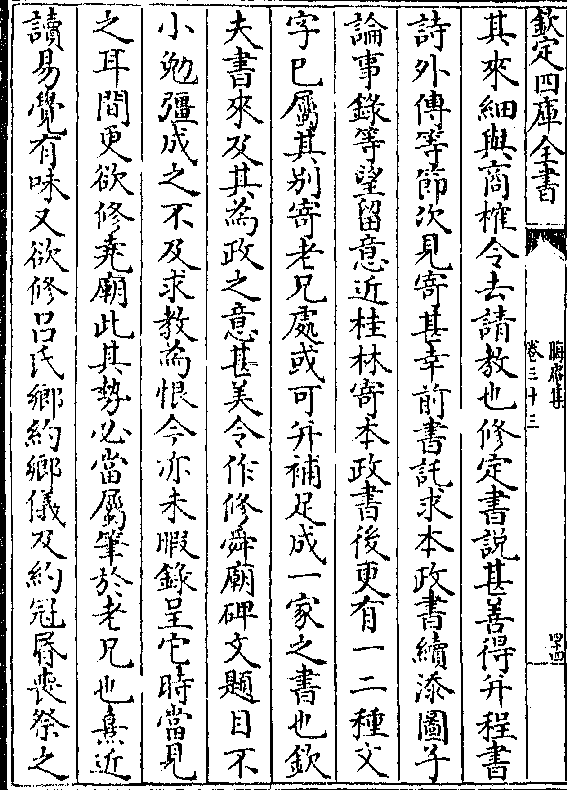 欽定四庫全書
晦庵集
卷三十三
四十四
其來細與商榷令去請教也修定書說甚善得并程書
詩外傳等節次見寄甚幸前書託求本政書續添圖子
論事錄等望留意近桂林寄本政書後更有一二種文
字已屬其別寄老兄處或可并補足成一家之書也欽
夫書來及其為政之意甚美令作修舜廟碑文題目不
小勉彊成之不及求教為恨今亦未暇錄呈它時當見
之耳間更欲修堯廟此其勢必當屬筆於老兄也熹近
讀易覺有味又欲修呂氏鄉約鄉儀及約冠昏喪祭之